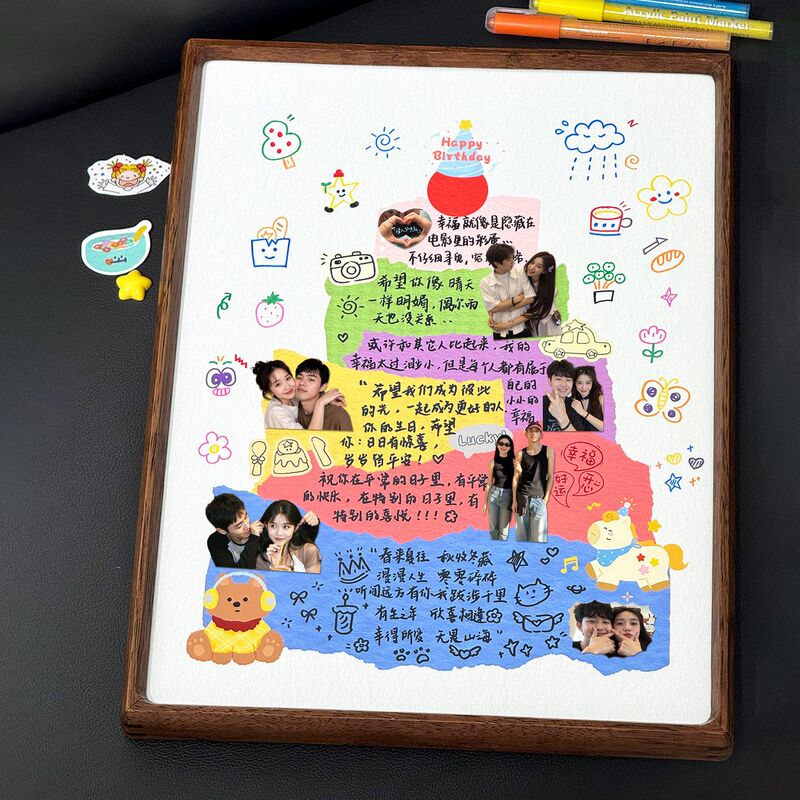 Acrylic Paint Marker
Happy
Birthday
幸福就像是隐藏在
电影里的彩蛋..
不仔细寻觅,
希望你像晴天
一样明媚,偶尔雨
天也没关系..
或许和其它人比起来,我的
幸福太过渺小,但是每个人都有属于
自己的
小小的
幸福
“希望我们成为彼此
的光,一起成为更好的人
你的生日,希望
你:日日有惊喜,
岁岁皆平安!
Lucky!
幸福
好运
恋
祝你在平常的日子里,有平常
的快乐,在特别的日子里,有
特别的喜悦!!!
“春来夏往 秋收冬藏
漫漫人生 零零碎碎
听闻远方有你 我跋涉千里
有生之年 欣喜相逢
幸得所爱 无畏山海”